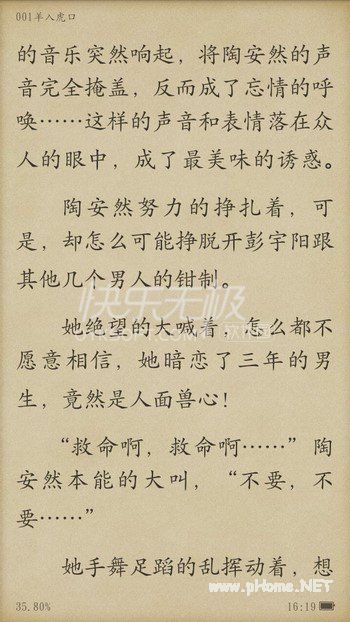 001羊入虎口
的音乐突然响起，将陶安然的声
音完全掩盖，反而成了忘情的呼
唤……这样的声音和表情落在众
人的眼中，成了最美味的诱惑。
陶安然努力的挣扎着，可
是，却怎么可能挣脱开彭宇阳跟
其他几个男人的钳制。
快乐无极
她绝望的大喊着，怎么都不
愿意相信，她暗恋了三年的男
生，竟然是人面兽心！
“救命啊，救命啊……”陶
安然本能的大叫，“不要，不
要……”
她手舞足蹈的乱挥动着，想
www.pHome.NET
35.80%
16:19